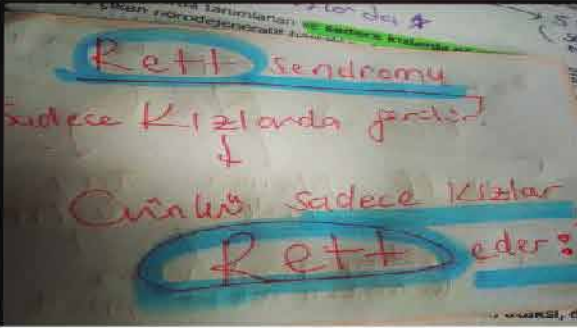 tanımlanan ve sadece kızlarda
nörodejeneratif
Rett sendromu
Sadece Kızlarda görülür!
↓
Çünkü sadece Kızlar
Rett eder :